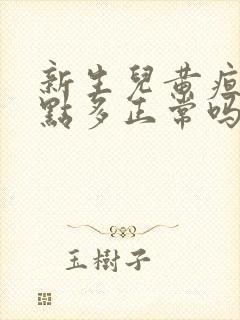 新生兒黃疸
點多正常吗
玉樹子